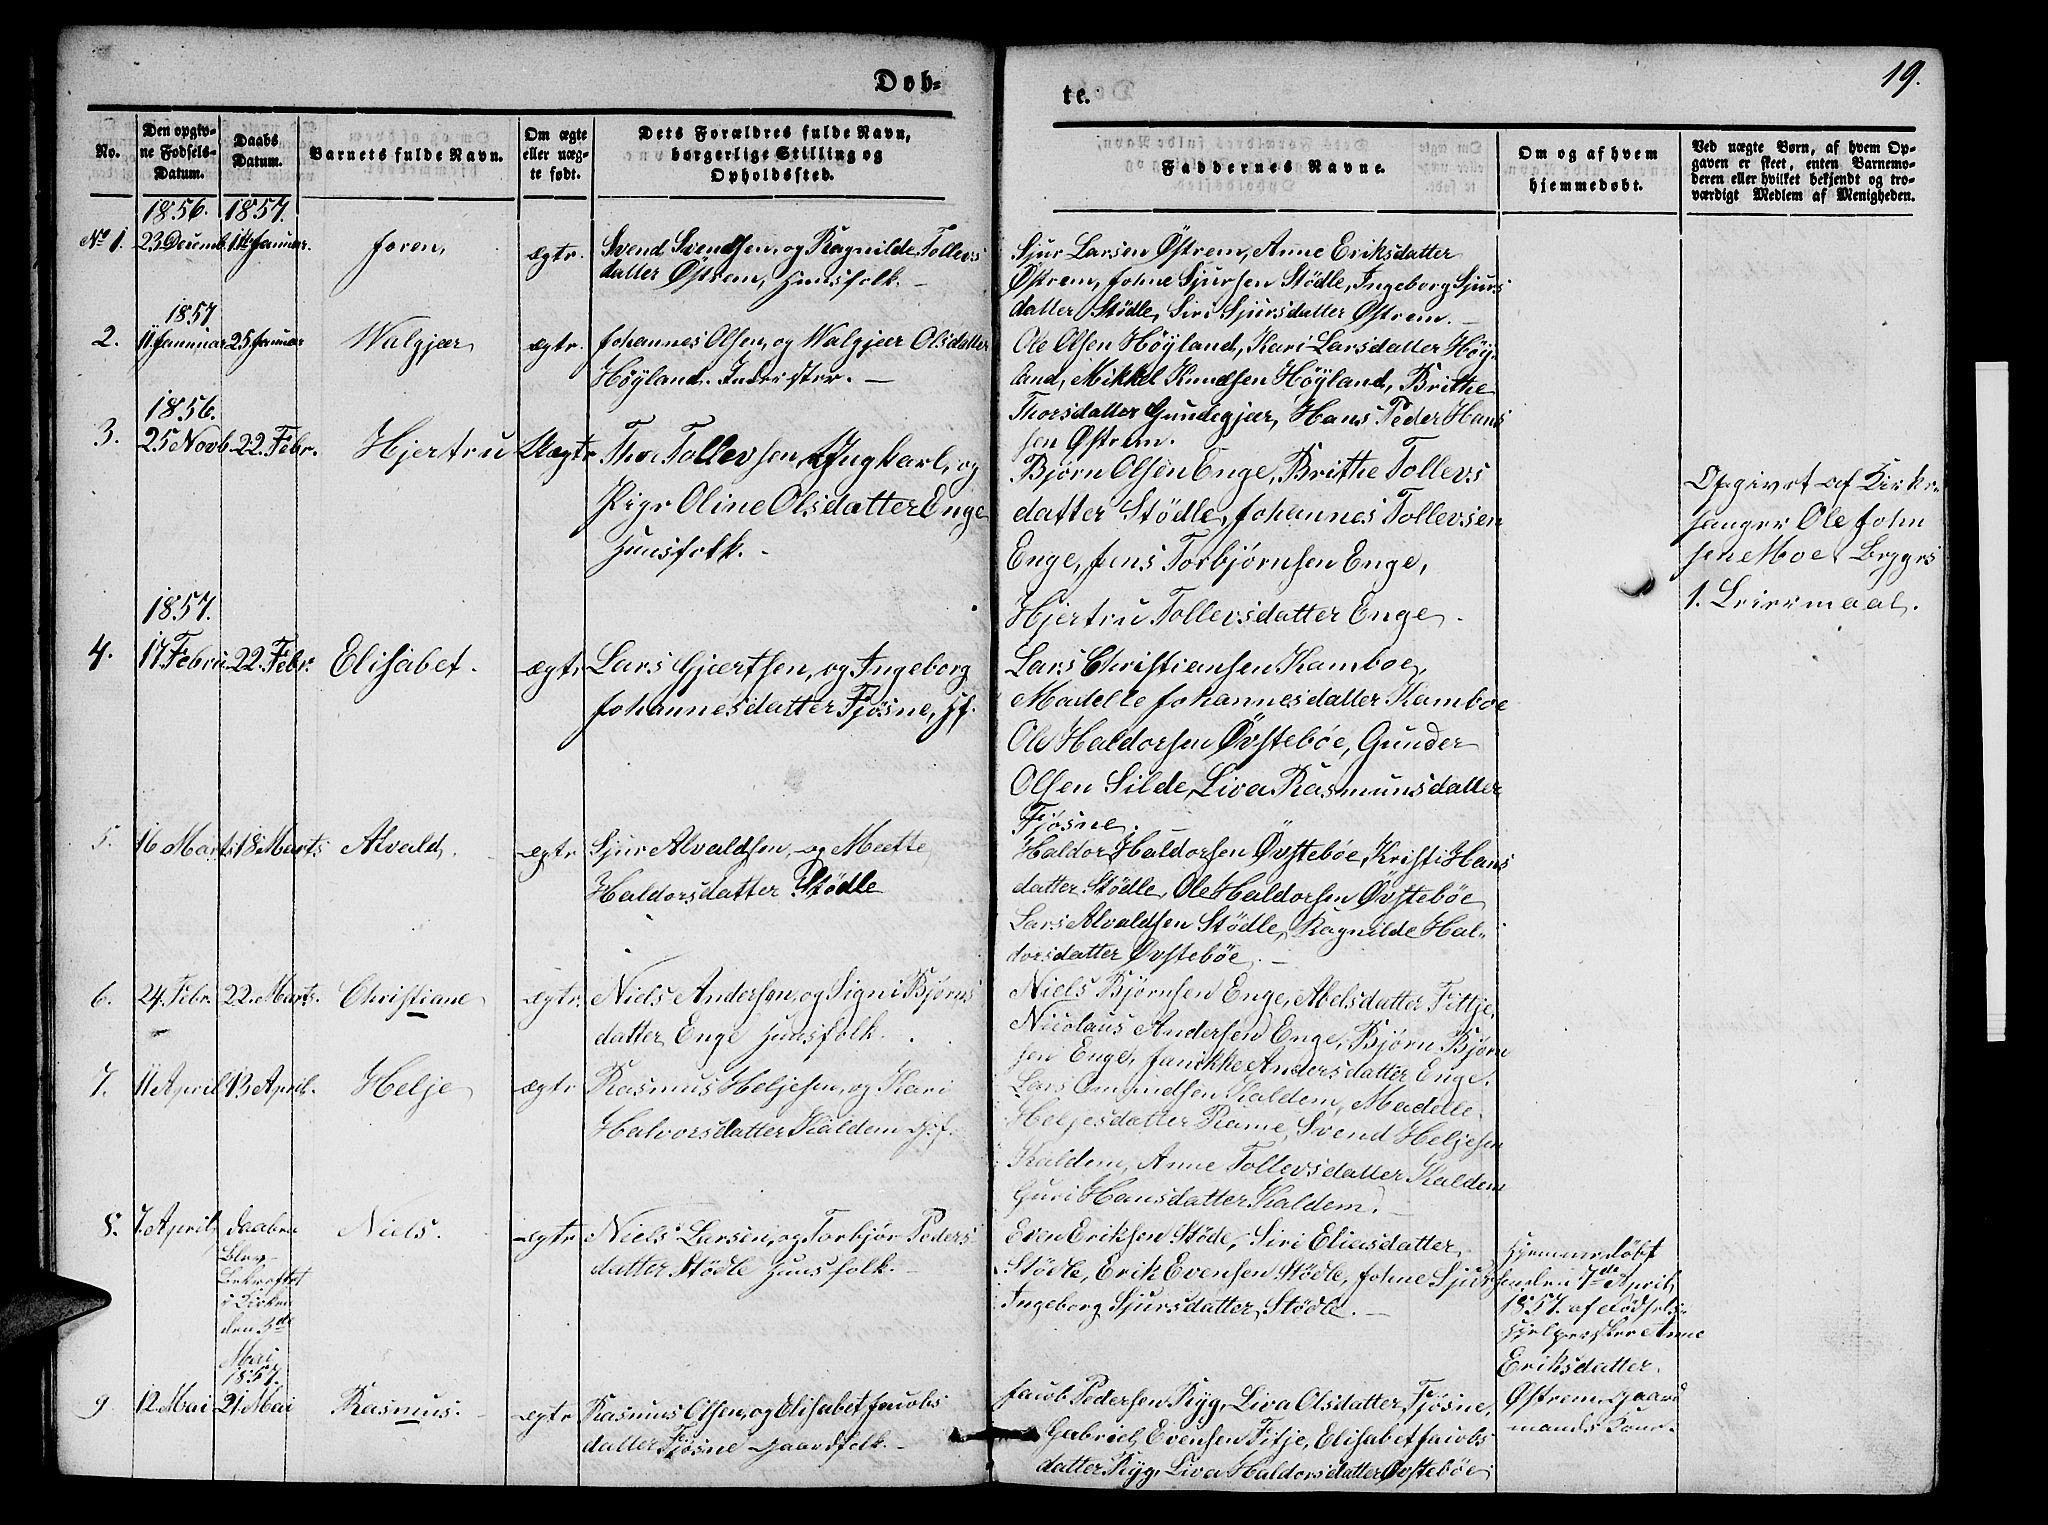 Døb-
te.
19.
No.
Den opgiv-
ne Fødsels-
Datum.
Daabs
Datum.
Barnets fulde Navn.
Om ægte
eller uæg-
te født.
Dets Forældres fulde Navn,
borgerlige Stilling og
Opholdssted.
Faddernes Navne.
Om og af hvem
hjemmedøbt.
Ved uægte Børn, af hvem Op-
gaven er skeet, enten Barnemo-
deren eller hvilket bekjendt og tro-
værdigt Medlem af Menigheden.
1856. 1857.
No 1. 23 Decemb. 1ste Januar. Joren, ægtr. Svend Svendsen, og Ragnilde Tollevs
datter Østrem, Huusfolk.
Sjur Larsen Østrem, Anne Eriksdatter
Østrem, Johne Sjursen Stødle, Ingeborg Sjurs
datter Stødle, Siri Sjursdatter Østrem.
1857
2. 11 Januar 25 Januar Walgjær ægtr. Johannes Olsen, og Walgjær Olsdatter
Høyland. Inderster.
Ole Olsen Høyland, Kari Larsdatter Høy-
land, Mikkel Knudsen Høyland, Brithe
Thorsdatter Gundegjær, Hans Peder Hans
sen Østrem.
1856.
3. 25 Novb. 22. Febr. Hjertru Uægtr Thor Tollevsen, Ungkarl, og
Pige Oline Olsdatter Enge
Huusfolk.
Bjørn Olsen Enge, Brithe Tollevs
datter Stødle, Johannes Tollevsen
Enge, Jens Torbjørnsen Enge,
Hjertru Tollevsdatter Enge.
Opgivet af Kirke-
sanger Ole John
sen Moe. Begges
1. Leiermaal.
1857.
4. 17 Febru 22. Febr. Elisabet. ægtr Lars Gjertsen, og Ingeborg
Johannesdatter Fjøsne, Hf.
Lars Christiansen Kamboe,
Madelle Johannesdatter Kamboe
Ole Haldorsen Øvstebøe, Gunder
Olsen Silde, Liva Rasmunsdatter
Fjøsne.
5. 16 Marts 18 Marts Alvald. ægtr Sjur Alvaldsen, og Mætte
Haldorsdatter Stødle
Haldor Haldorsen Øvstebøe, Kristi Hans
datter Stødle, Ole Haldorsen Øvstebøe
Lars Alvaldsen Stødle, Ragnilde Hal-
dorsdatter Øvstebøe.
6. 24. Febr. 22. Marts. Christiane ægtr. Niels Andersen, og Signi Bjørns
datter Enge Huusfolk.
Niels Bjørnsen Enge, Abelsdatter Fittje,
Nicolaus Andersen Enge, Bjørn Bjørn
sen Enge, Janikke Andersdatter Enge.
7. 11 April 13 April. Helje ægtr Rasmus Heljesen, og Kari
Halvorsdatter Kaldem Hf.
Lars Omundsen Kaldem, Madelle
Heljesdatter Rame, Svend Heljesen
Kaldem, Anne Tollevsdatter Kaldem
Guri Hansdatter Kaldem.
8. 7. April, Daaben
blev
bekræftet
i Kirken
den 3de
Mai
1857.
Niels. ægtr Niels Larsen, og Torbjør Peders
datter Stødle Huusfolk.
Even Eriksen Støde, Siri Eliasdatter
Stødle, Erik Evensen Stødle, Johne Sjursen
Ingeborg Sjursdatter Stødle.
Hjemmedøbt
den 7de April,
1857. af Fødsels-
hjelpersken Anne
Eriksdatter
Østrem, Gaard
mands Kone.
9. 12. Mai 21. Mai Rasmus. ægtr Rasmus Olsen, og Elisabet Jacobs
datter Fjøsne Gaardfolk.
Jacob Pedersen Ryg, Liva Olsdatter Fjøsne,
Gabriel Evensen Fitje, Elisabet Jacobs
datter Ryg, Liva Haldorsdatter Øvstebøe